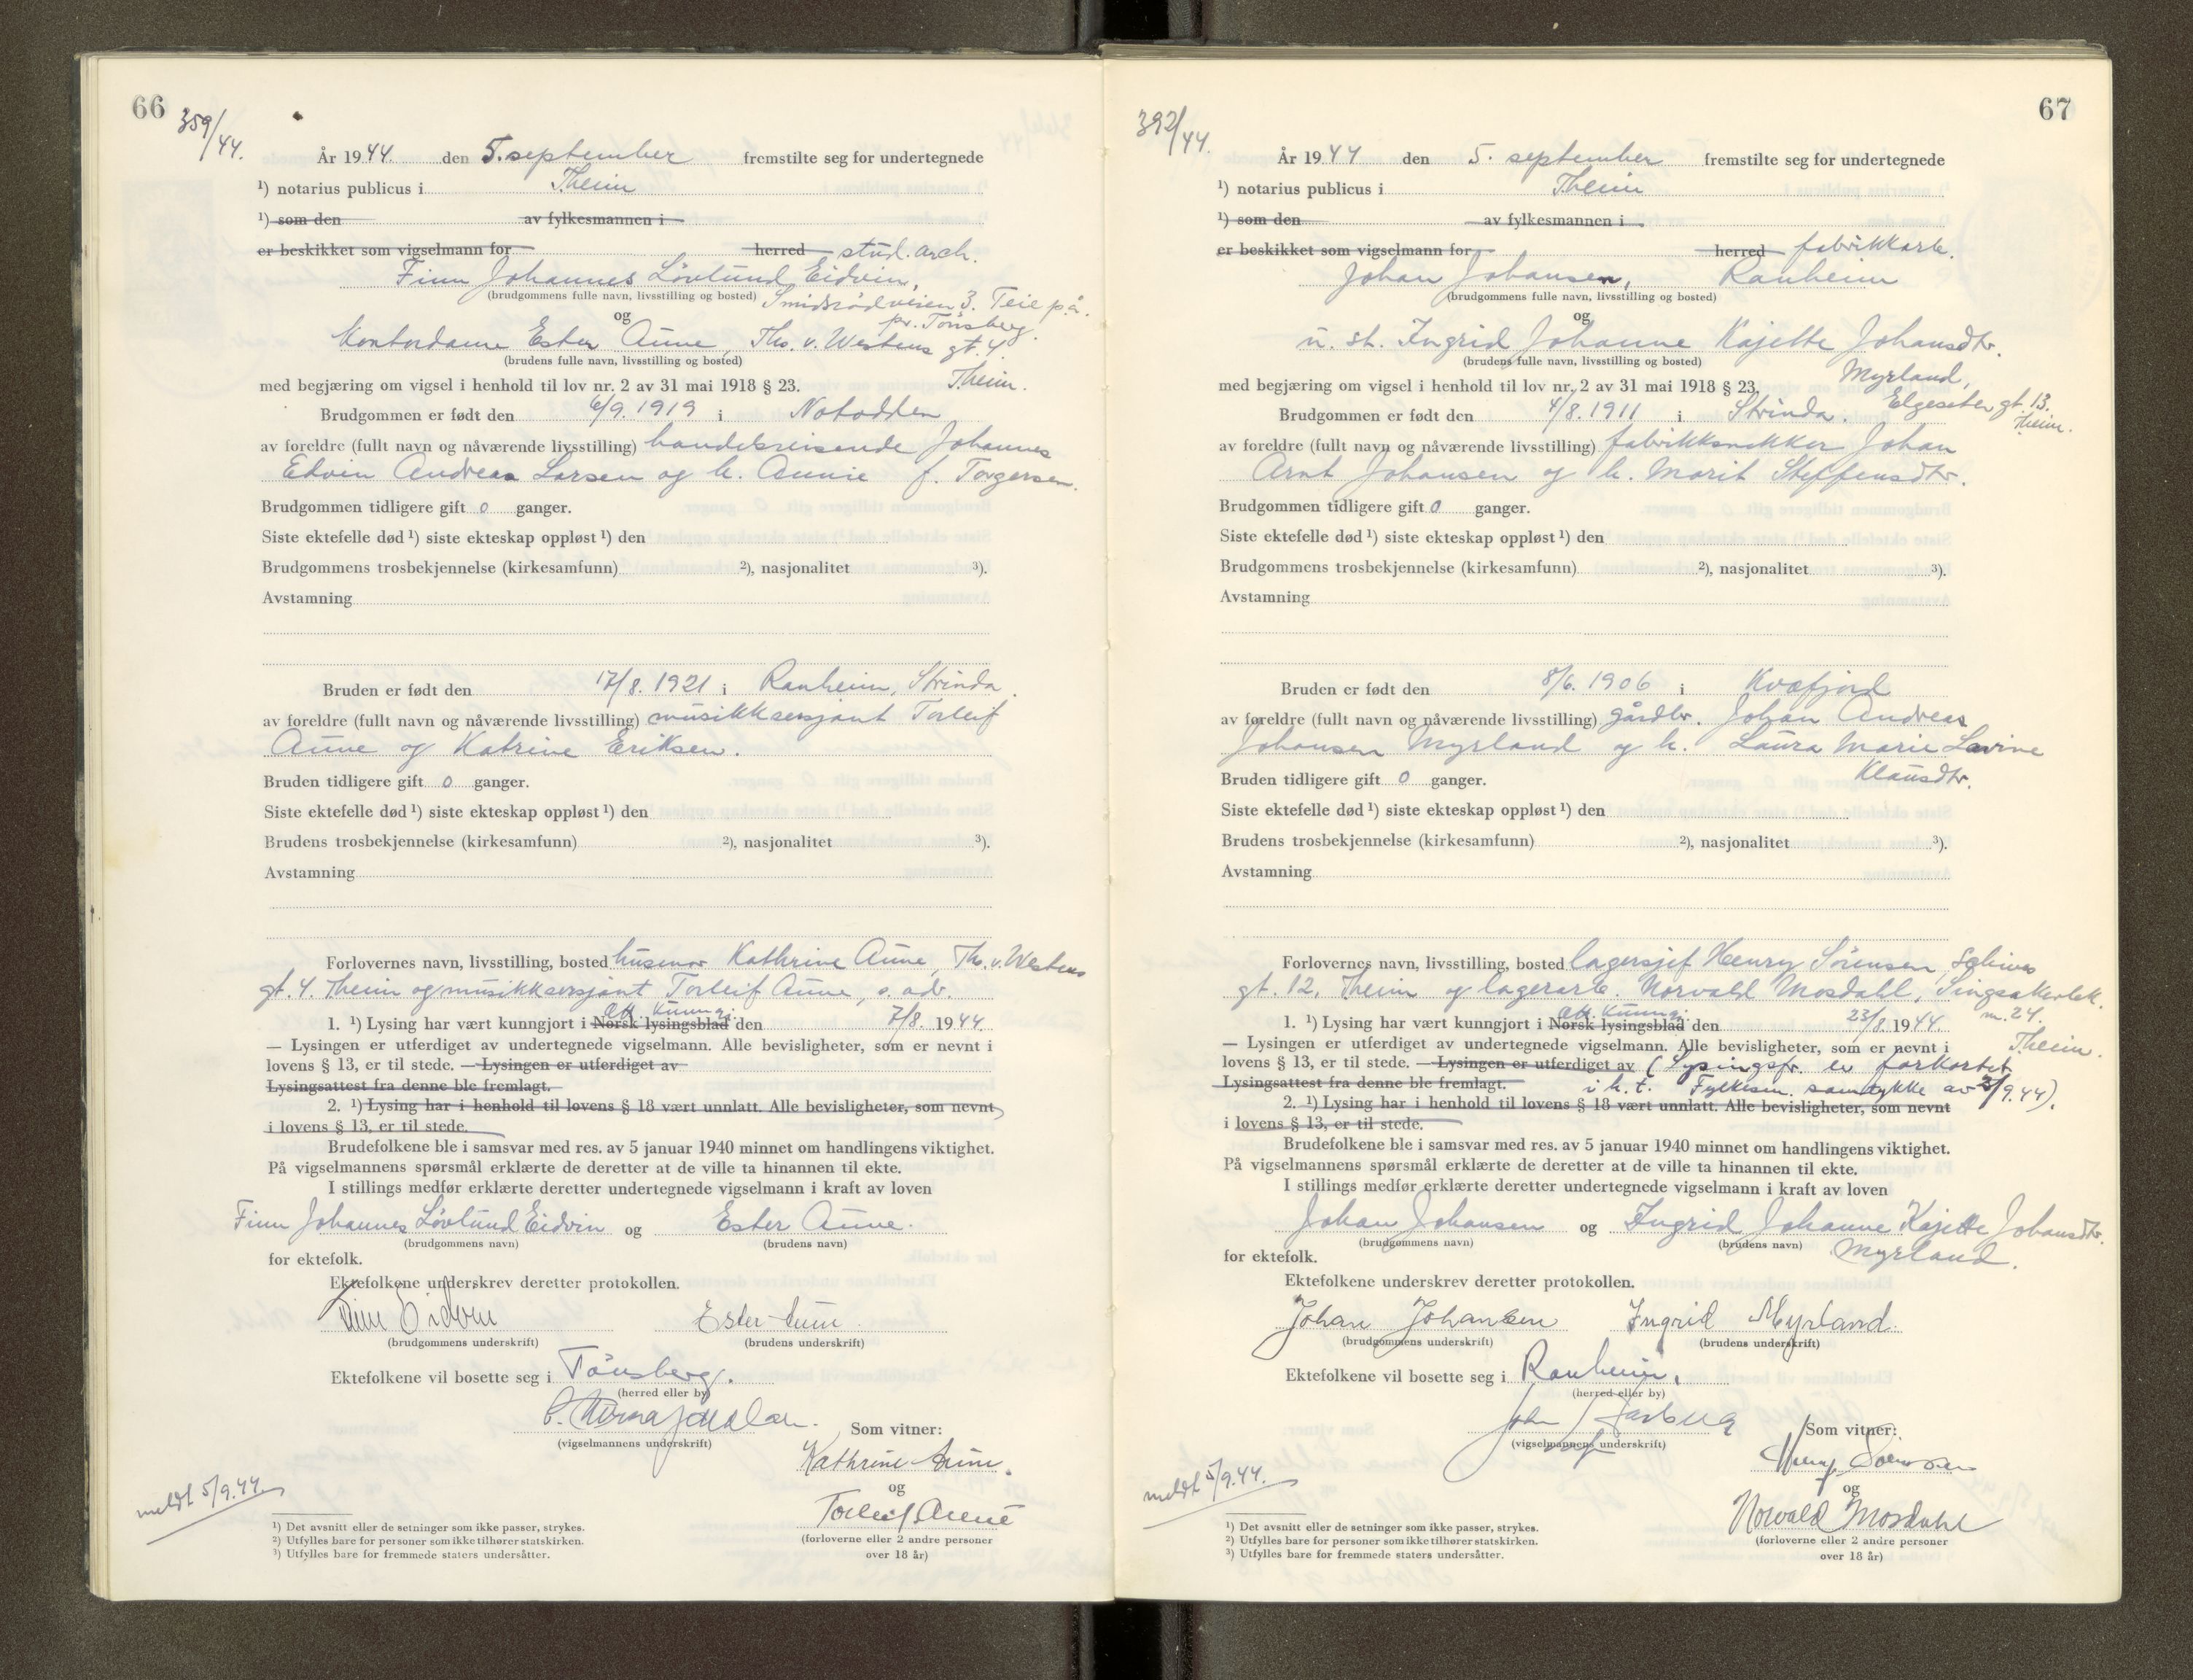 66
359/44.
År 1944. den 5. september fremstilte seg for undertegnede
¹) notarius publicus i Theim
¹) som den av fylkesmannen i
er beskikket som vigselmann for herred stud. arch.
Finn Johannes Lövlund Eidvin,
(brudgommens fulle navn, livsstilling og bosted) Smidsrödveien 3. Teie p.å.
og pr. Tönsberg.
Kontordame Ester Aune, Th. v. Westens gt. 4.
(brudens fulle navn, livsstilling og bosted)
med begjæring om vigsel i henhold til lov nr. 2 av 31 mai 1918 § 23. Theim.
Brudgommen er født den 6/9. 1919 i Notodden
av foreldre (fullt navn og nåværende livsstilling) handelsreisende Johannes
Edvin Andreas Larsen og h. Annie f. Torgersen.
Brudgommen tidligere gift 0 ganger.
Siste ektefelle død ¹) siste ekteskap oppløst ¹) den
Brudgommens trosbekjennelse (kirkesamfunn) ²), nasjonalitet ³).
Avstamning
Bruden er født den 17/8. 1921 i Ranheim, Strinda.
av foreldre (fullt navn og nåværende livsstilling) musikksersjant Torleif
Aune og Katrine Eriksen.
Bruden tidligere gift 0 ganger.
Siste ektefelle død ¹) siste ekteskap oppløst ¹) den
Brudens trosbekjennelse (kirkesamfunn) ²), nasjonalitet ³).
Avstamning
Forlovernes navn, livsstilling, bosted husmor Kathrine Aune, Th. v. Westens
gt. 4. Theim og musikksersjant Torleif Aune, s. adr.
Off. Kunngj.
1. ¹) Lysing har vært kunngjort i Norsk lysingsblad den 7/8. 1944.
— Lysingen er utferdiget av undertegnede vigselmann. Alle bevisligheter, som er nevnt i
lovens § 13, er til stede. — Lysingen er utferdiget av
Lysingsattest fra denne ble fremlagt.
2. ¹) Lysing har i henhold til lovens § 18 vært unnlatt. Alle bevisligheter, som nevnt
i lovens § 13, er til stede.
Brudefolkene ble i samsvar med res. av 5 januar 1940 minnet om handlingens viktighet.
På vigselmannens spørsmål erklærte de deretter at de ville ta hinannen til ekte.
I stillings medfør erklærte deretter undertegnede vigselmann i kraft av loven
Finn Johannes Lövlund Eidvin og Ester Aune.
(brudgommens navn) (brudens navn)
for ektefolk.
Ektefolkene underskrev deretter protokollen.
Finn Eidvin Ester Aune.
(brudgommens underskrift) (brudens underskrift)
Ektefolkene vil bosette seg i Tönsberg.
(herred eller by)
(vigselmannens underskrift)
Som vitner:
Kathrine Aune.
og
Torleif Aune
(forloverne eller 2 andre personer
over 18 år)
meldt 5/9.44.
¹) Det avsnitt eller de setninger som ikke passer, strykes.
²) Utfylles bare for personer som ikke tilhører statskirken.
³) Utfylles bare for fremmede staters undersåtter.
67
392/44.
År 1944 den 5. september fremstilte seg for undertegnede
¹) notarius publicus i Theim
¹) som den av fylkesmannen i
er beskikket som vigselmann for herred fabrikkarb.
Johan Johansen, Ranheim
(brudgommens fulle navn, livsstilling og bosted)
og
u. st. Ingrid Johanne Kajette Johansdtr.
(brudens fulle navn, livsstilling og bosted)
med begjæring om vigsel i henhold til lov nr. 2 av 31 mai 1918 § 23. Myrland,
Elgeseter gt. 13. Theim.
Brudgommen er født den 4/8. 1911 i Strinda.
av foreldre (fullt navn og nåværende livsstilling) fabrikksnekker Johan
Arnt Johansen og h. Marit Steffensdtr.
Brudgommen tidligere gift 0 ganger.
Siste ektefelle død ¹) siste ekteskap oppløst ¹) den
Brudgommens trosbekjennelse (kirkesamfunn) ²), nasjonalitet ³).
Avstamning
Bruden er født den 8/6. 1906 i Kvæfjord
av foreldre (fullt navn og nåværende livsstilling) gårdbr. Johan Andreas
Johansen Myrland og h. Laura Marie Lavine
Klausdtr.
Bruden tidligere gift 0 ganger.
Siste ektefelle død ¹) siste ekteskap oppløst ¹) den
Brudens trosbekjennelse (kirkesamfunn) ²), nasjonalitet ³).
Avstamning
Forlovernes navn, livsstilling, bosted lagersjef Henry Sörensen, Schives
gt. 12, Theim og lagerarb. Norvald Mosdahl, Singsakerbk.
m. 24. Theim.
Off. Kunngj.
1. ¹) Lysing har vært kunngjort i Norsk lysingsblad den 23/8. 1944.
— Lysingen er utferdiget av undertegnede vigselmann. Alle bevisligheter, som er nevnt i
lovens § 13, er til stede. — Lysingen er utferdiget av (Lysingsfr. er forkortet
Lysingsattest fra denne ble fremlagt. i h. t. Fylkesm. samtykke av 2/9.44).
2. ¹) Lysing har i henhold til lovens § 18 vært unnlatt. Alle bevisligheter, som nevnt
i lovens § 13, er til stede.
Brudefolkene ble i samsvar med res. av 5 januar 1940 minnet om handlingens viktighet.
På vigselmannens spørsmål erklærte de deretter at de ville ta hinannen til ekte.
I stillings medfør erklærte deretter undertegnede vigselmann i kraft av loven
Johan Johansen og Ingrid Johanne Kajette Johansdtr.
(brudgommens navn) (brudens navn) Myrland.
for ektefolk.
Ektefolkene underskrev deretter protokollen.
Johan Johansen Ingrid Myrland.
(brudgommens underskrift) (brudens underskrift)
Ektefolkene vil bosette seg i Ranheim.
(herred eller by)
John
(vigselmannens underskrift)
Som vitner:
Henry Sörensen
og
Norvald Mosdahl
(forloverne eller 2 andre personer
over 18 år)
meldt 5/9.44.
¹) Det avsnitt eller de setninger som ikke passer, strykes.
²) Utfylles bare for personer som ikke tilhører statskirken.
³) Utfylles bare for fremmede staters undersåtter.